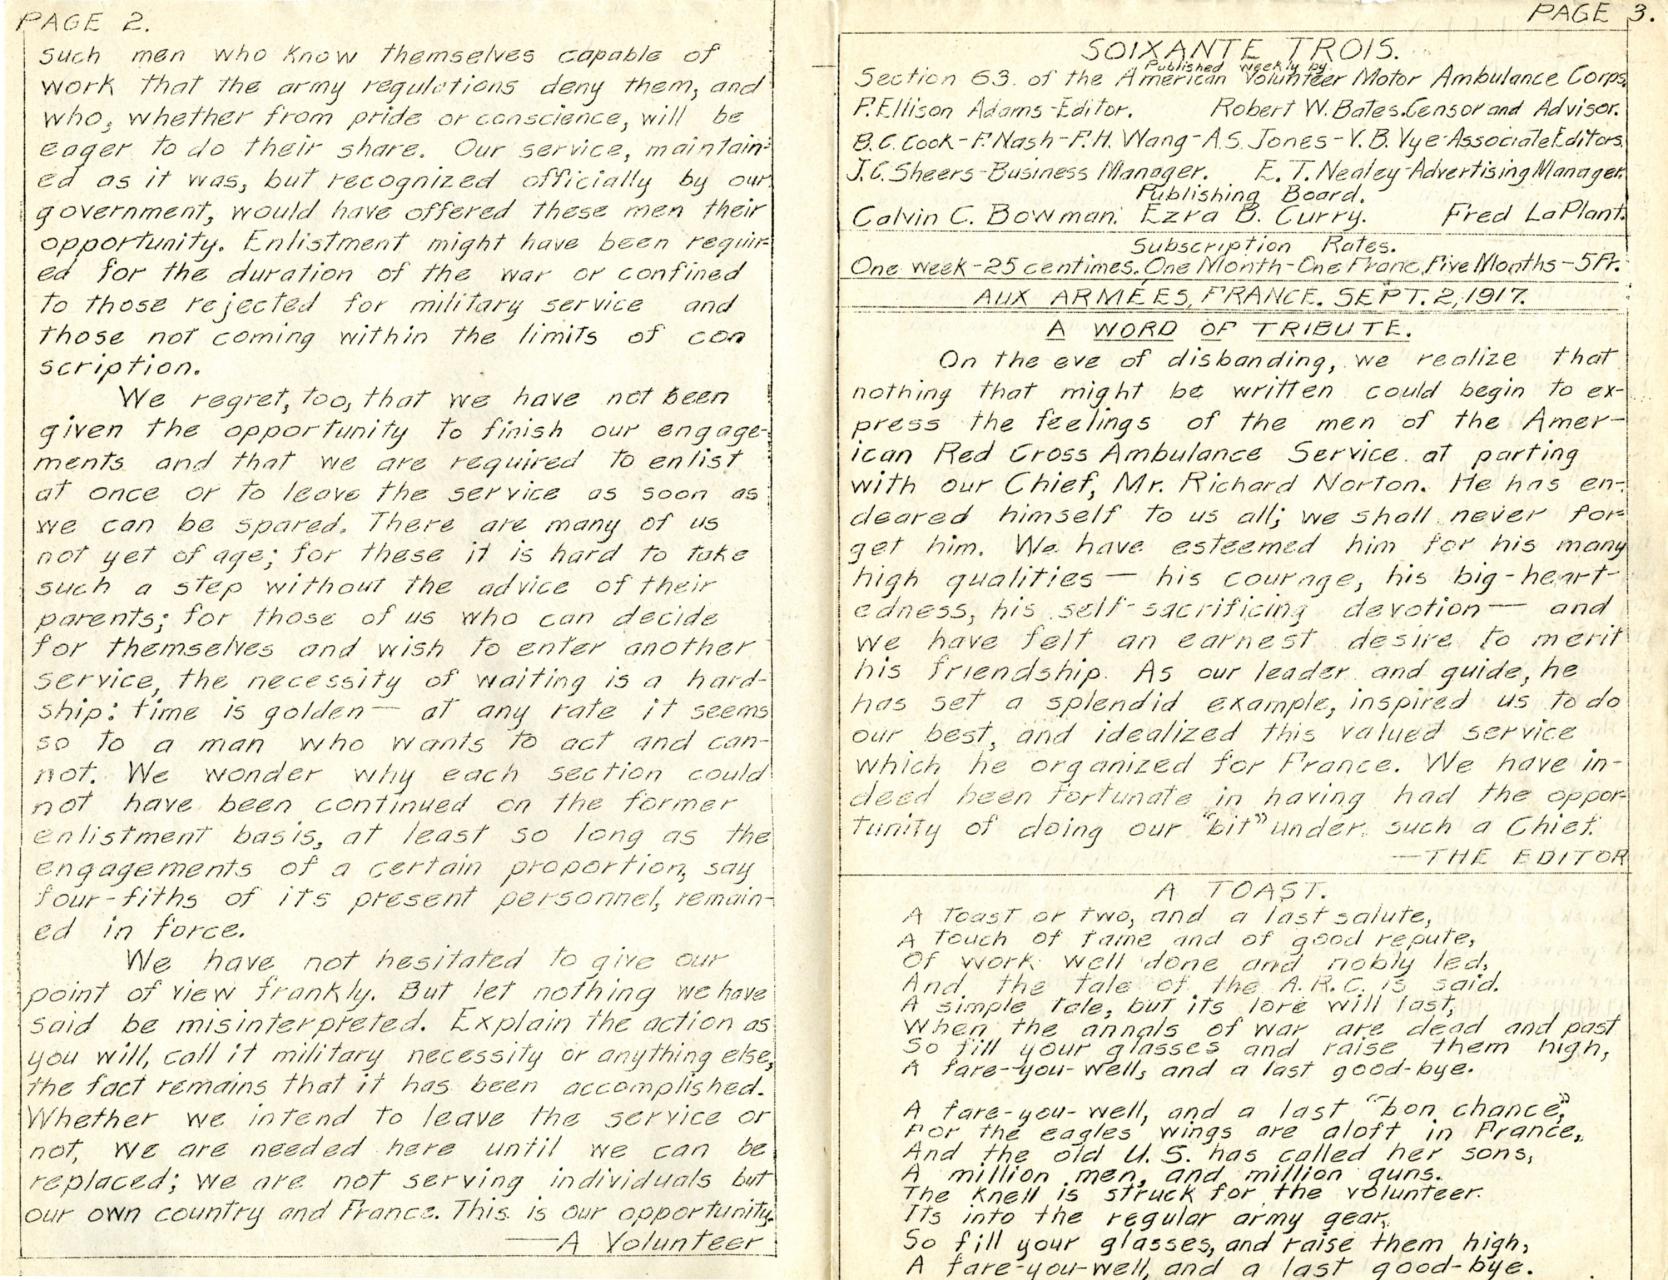 PAGE 2.
such men who know themselves capable of
work that the army regulations deny them, and
who, whether from pride or conscience, will be
eager to do their share. Our service, maintain-
ed as it was, but recognized officially by our
government, would have offered these men their
opportunity. Enlistment might have been requir-
ed for the duration of the war or confined
to those rejected for military service and
those not coming within the limits of con
scription.
We regret, too, that we have not been
given the opportunity to finish our engage-
ments and that we are required to enlist
at once or to leave the service as soon as
we can be spared. There are many of us
not yet of age; for these it is hard to take
such a step without the advice of their
parents; for those of us who can decide
for themselves and wish to enter another
service, the necessity of waiting is a hard-
ship: time is golden — at any rate it seems
so to a man who wants to act and can-
not. We wonder why each section could
not have been continued on the former
enlistment basis, at least so long as the
engagements of a certain proportion, say
four-fiths of its present personnel, remain-
ed in force.
We have not hesitated to give our
point of view frankly. But let nothing we have
said be misinterpreted. Explain the action as
you will, call it military necessity or anything else,
the fact remains that it has been accomplished.
Whether we intend to leave the service or
not, we are needed here until we can be
replaced; we are not serving individuals but
our own country and France. This is our opportunity.
—A Volunteer
PAGE 3.
SOIXANTE TROIS.
Published weekly by
Section 63. of the American Volunteer Motor Ambulance Corps.
F. Ellison Adams-Editor. Robert W. Bates. Censor and Advisor.
B.C. Cook-F. Nash-F.H. Wang-A.S. Jones-V.B. Vye-Associate Editors.
J.C. Sheers-Business Manager. E.T. Nealey-Advertising Manager.
Publishing Board.
Calvin C. Bowman. Ezra B. Curry. Fred LaPlant.
Subscription Rates.
One week-25 centimes. One Month-One Franc, Five Months-5Fr.
AUX ARMÉES, FRANCE. SEPT. 2, 1917.
A WORD OF TRIBUTE.
On the eve of disbanding, we realize that
nothing that might be written could begin to ex-
press the feelings of the men of the Amer-
ican Red Cross Ambulance Service at parting
with our Chief, Mr. Richard Norton. He has en-
deared himself to us all; we shall never for-
get him. We have esteemed him for his many
high qualities — his courage, his big-heart-
edness, his self-sacrificing devotion — and
we have felt an earnest desire to merit
his friendship. As our leader and guide, he
has set a splendid example, inspired us to do
our best, and idealized this valued service
which he organized for France. We have in-
deed been fortunate in having had the oppor-
tunity of doing our "bit" under such a Chief.
—THE EDITOR
A TOAST.
A toast or two, and a last salute,
A touch of fame and of good repute,
Of work well done and nobly led,
And the tale of the A.R.C. is said.
A simple tale, but its lore will last,
When the annals of war are dead and past
So fill your glasses and raise them high,
A fare-you-well, and a last good-bye.
A fare-you-well, and a last "bon chance,"
For the eagles' wings are aloft in France,
And the old U.S. has called her sons,
A million men, and million guns.
The knell is struck for the volunteer.
Its into the regular army gear,
So fill your glasses, and raise them high,
A fare-you-well, and a last good-bye.